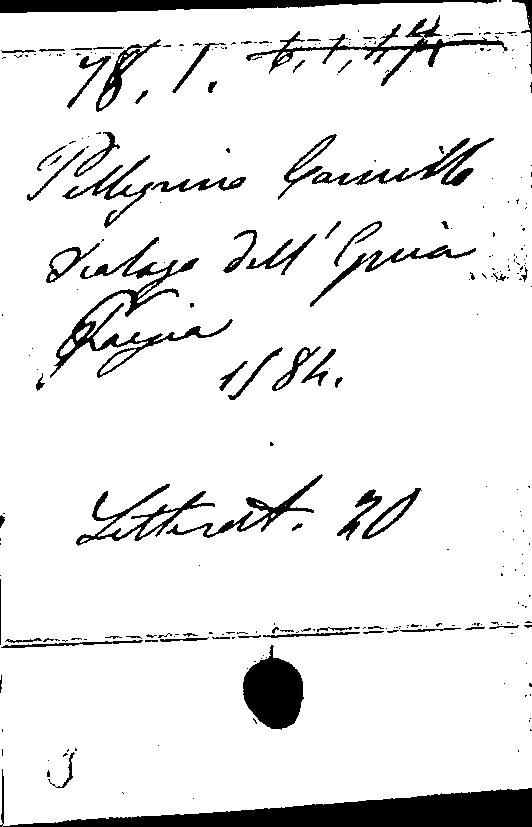 78. 1. 6,1,44
Pellegrino Camillo
Dialogo dell' Epica
Poesia
1584.
Letterat. 20
3